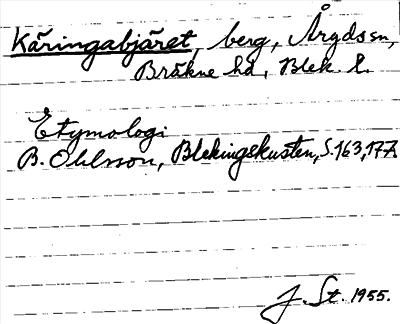 Käringabjäret, berg, Åryds sn,
Bräkne hd, Blek. l.
Etymologi
B. Ohlsson, Blekingskusten, S. 163, 177
J. St. 1955.